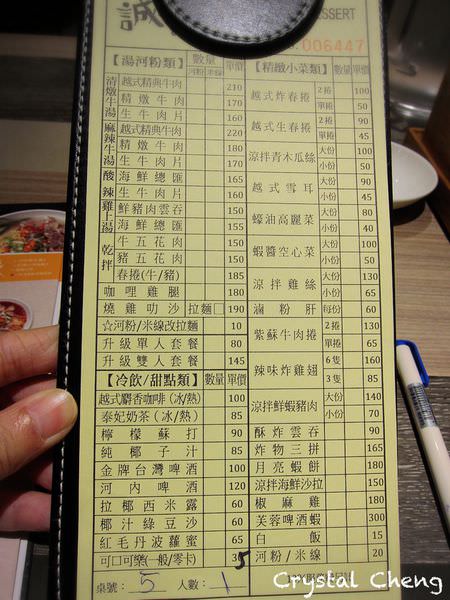 誠
DESSERT
006447
【湯河粉類】 數量 單價
河粉 米線
清燉牛湯
越式精典牛肉 210
精燉牛肉 170
生牛肉片 160
麻辣牛湯
越式精典牛肉 220
精燉牛肉 180
生牛肉片 170
酸辣
海鮮總匯 165
生牛肉片 160
雞上湯
鮮豬肉雲吞 150
海鮮總匯 155
乾拌
牛五花肉 150
豬五花肉 150
春捲(牛/豬) 185
咖哩雞腿 180
燒雞叻沙 拉麵□ 190
☆河粉/米線改拉麵 10
升級單人套餐 80
升級雙人套餐 145
【冷飲/甜點類】 數量 單價
越式麝香咖啡(冰/熱) 100
泰妃奶茶(冰/熱) 85
檸檬蘇打 90
純椰子汁 85
金牌台灣啤酒 100
河內啤酒 120
拉椰西米露 60
椰汁綠豆沙 60
紅毛丹波蘿蜜 65
可口可樂(一般/零卡) 35
桌號: 5 人數: 1
【精緻小菜類】 數量 單價
越式炸春捲 2捲 100
單捲 50
越式生春捲 2捲 90
單捲 45
涼拌青木瓜絲 大份 100
小份 50
越式雪耳 大份 90
小份 45
蠔油高麗菜 大份 80
小份 40
蝦醬空心菜 大份 100
小份 50
涼拌雞絲 大份 130
小份 65
滷粉肝 每份 60
紫蘇牛肉捲 2捲 130
單捲 65
辣味炸雞翅 6隻 160
3隻 85
涼拌鮮蝦豬肉 大份 140
小份 70
酥炸雲吞 90
炸物三拼 165
月亮蝦餅 180
涼拌海鮮沙拉 150
椒麻雞 180
芙蓉啤酒蝦 300
白飯 15
河粉/米線 20
Crystal Cheng